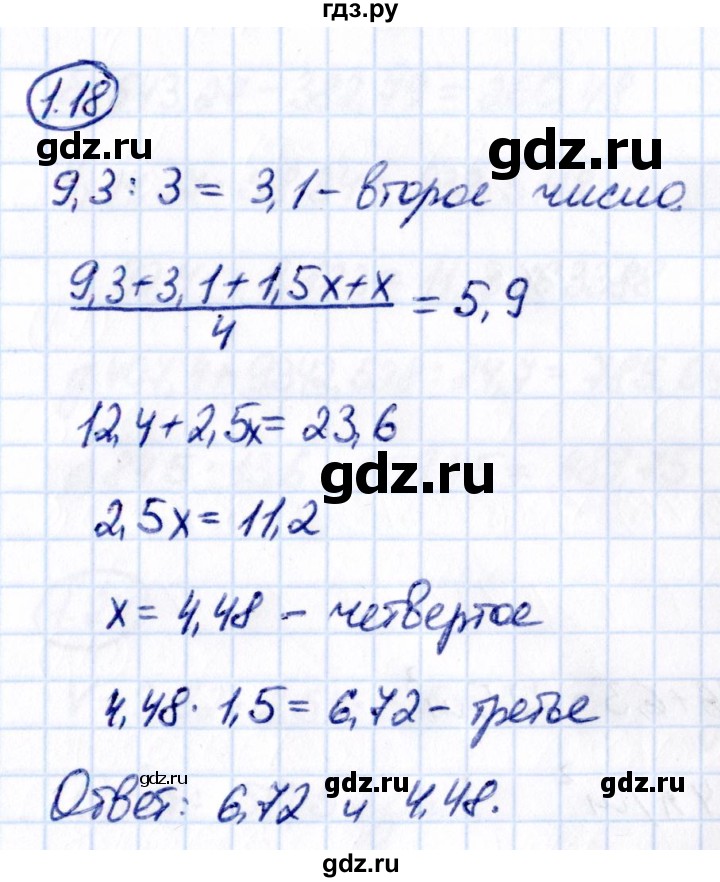 гдз.ру
1.18
gdz.ru
gdz.ru
9,3 : 3 = 3,1 - второе число.
9,3+3,1+1,5x+x
/4 = 5,9
12,4+2,5x = 23,6
gdz.ru
2,5x = 11,2
x = 4,48 - четвертое
4,48 · 1,5 = 6,72 - третье
gdz.ru
gdz.ru
Ответ: 6,72 и 4,48.
gdz.ru